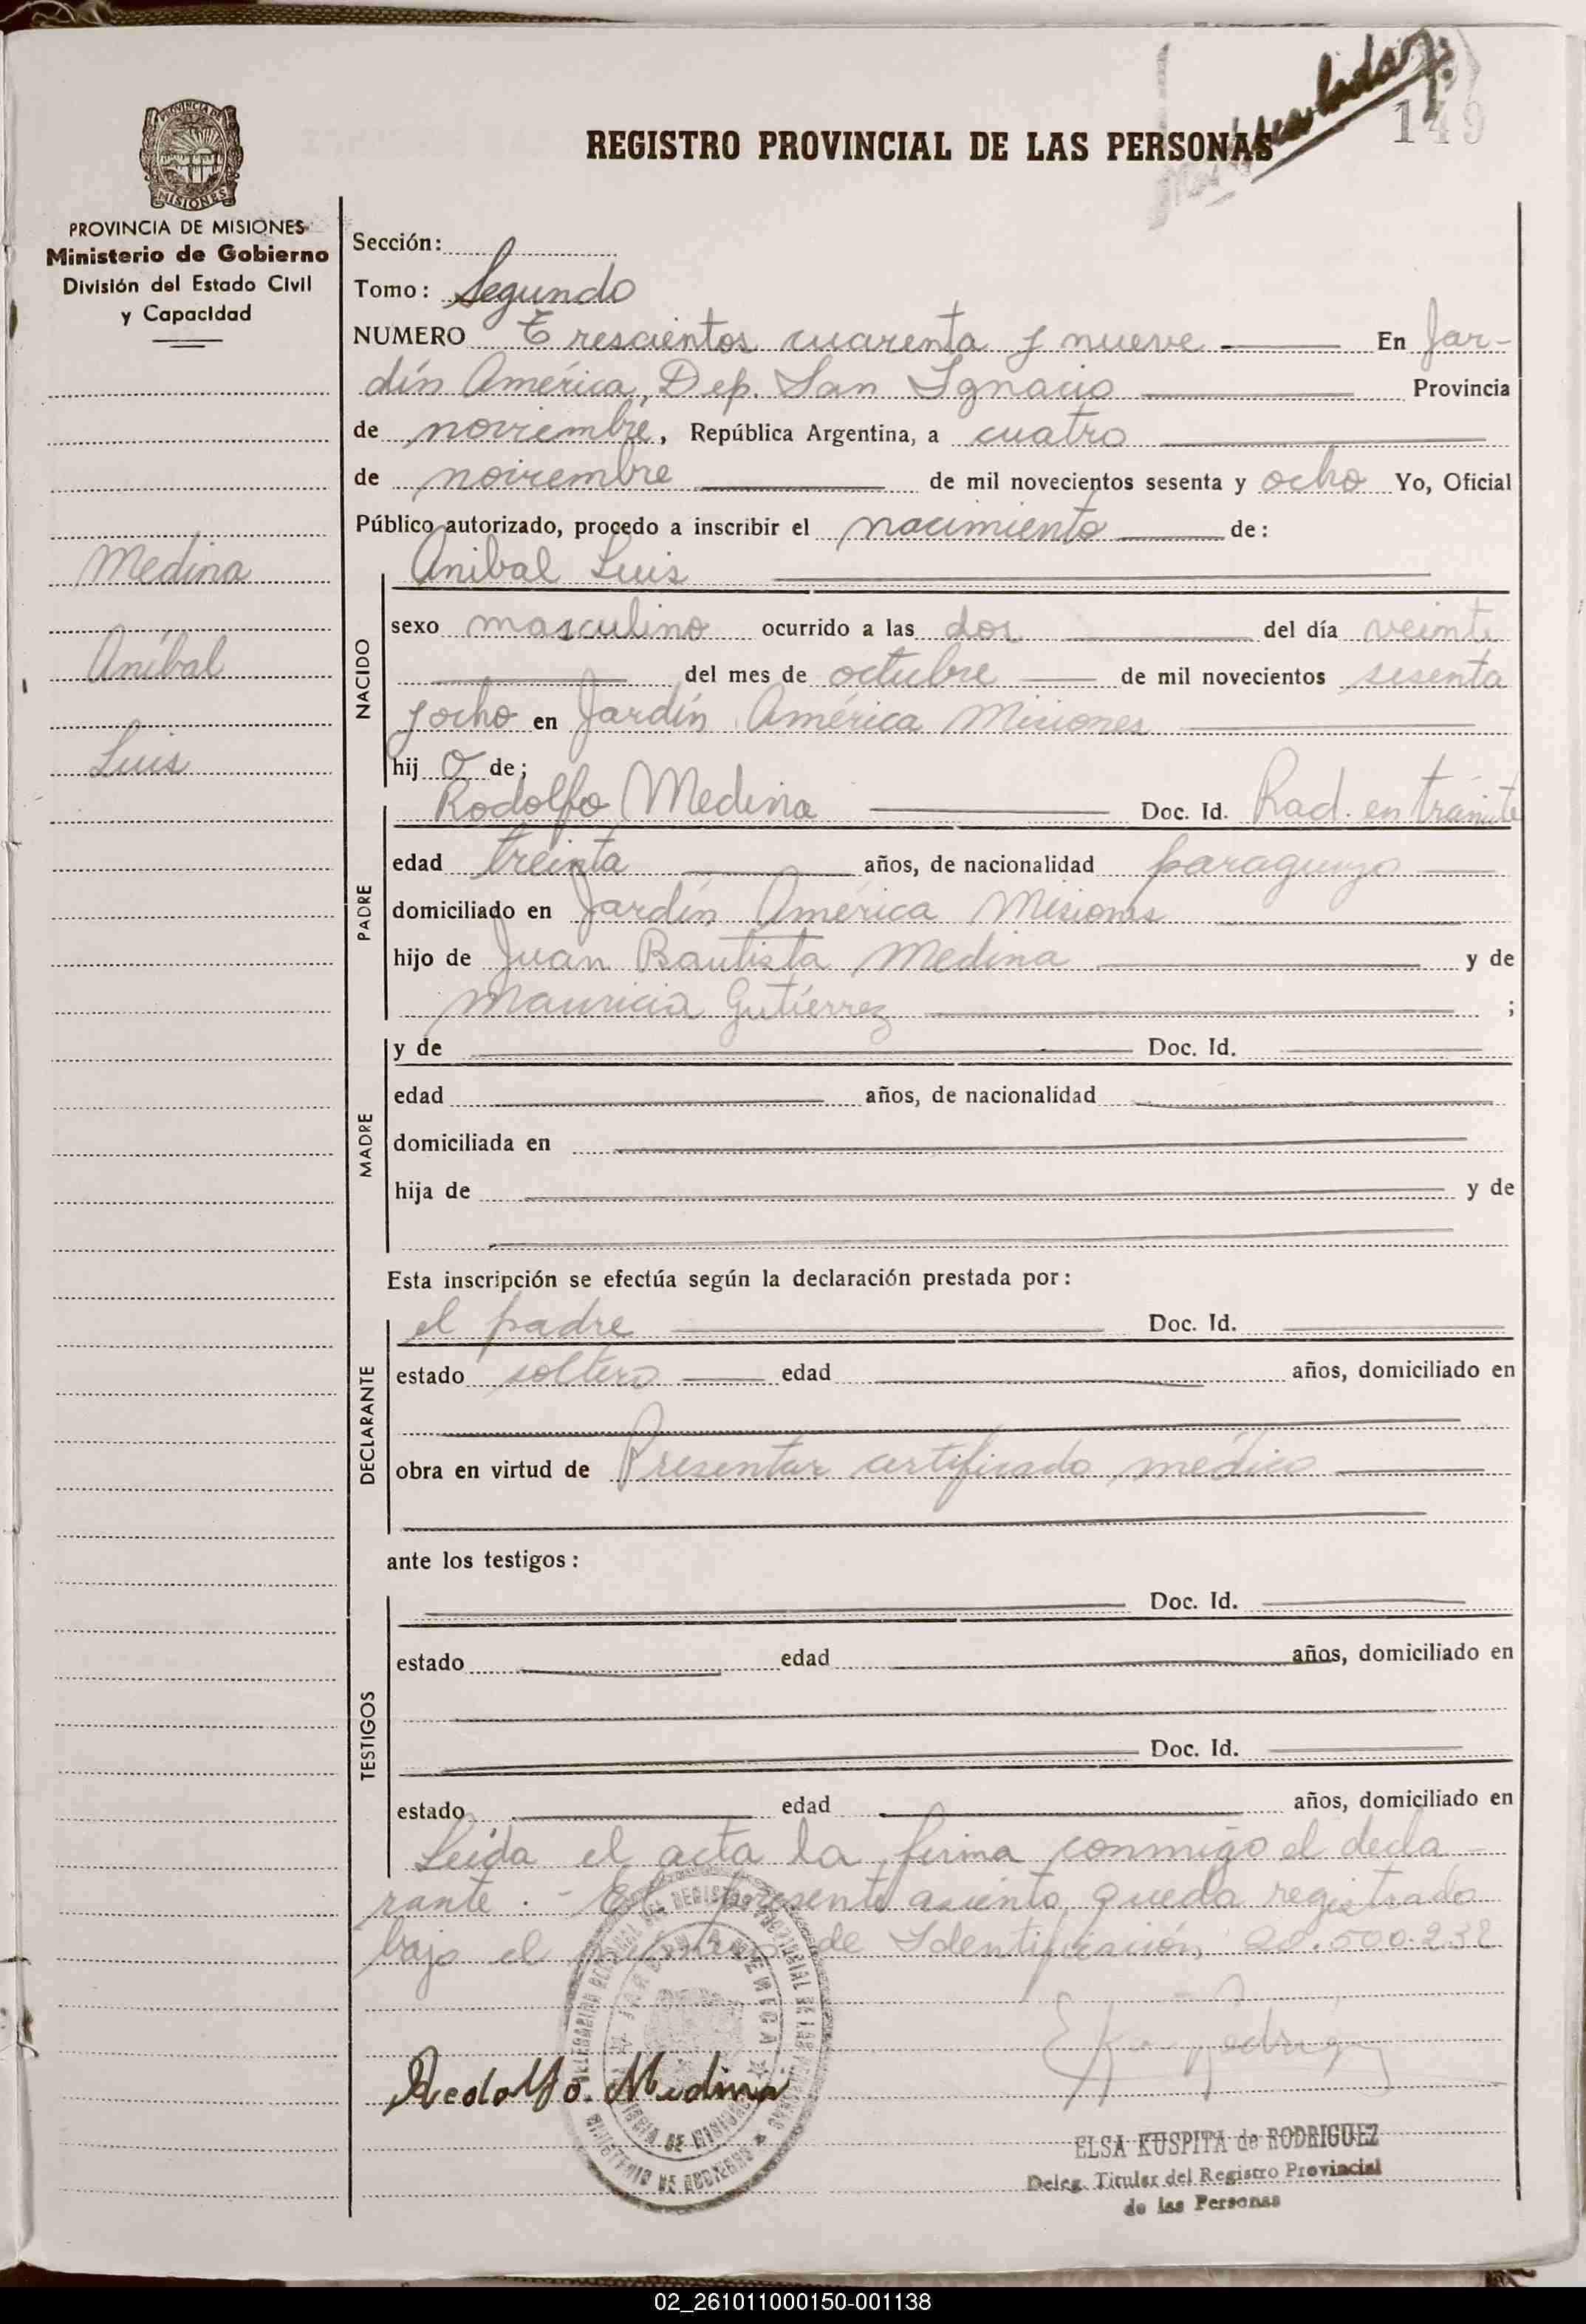 REGISTRO PROVINCIAL DE LAS PERSONAS
149
PROVINCIA DE MISIONES
Ministerio de Gobierno
División del Estado Civil
y Capacidad
Medina
Aníbal
Luis
Sección:
Tomo: Segundo
NUMERO Trescientos cuarenta y nueve En Jar-
dín América, Dep. San Ignacio Provincia
de noviembre, República Argentina, a cuatro
de noviembre de mil novecientos sesenta y ocho Yo, Oficial
Público autorizado, procedo a inscribir el nacimiento de:
NACIDO
Anibal Luis
sexo masculino ocurrido a las dos del día veinte
del mes de octubre de mil novecientos sesenta
y ocho en Jardín América Misiones
hij o de;
PADRE
Rodolfo Medina Doc. Id. Rad. en trámite
edad treinta años, de nacionalidad paraguayo
domiciliado en Jardín América Misiones
hijo de Juan Bautista Medina y de
Mauricia Gutiérrez ;
MADRE
y de Doc. Id.
edad años, de nacionalidad
domiciliada en
hija de y de
Esta inscripción se efectúa según la declaración prestada por:
DECLARANTE
el padre Doc. Id.
estado soltero edad años, domiciliado en
obra en virtud de Presentar certificado médico
ante los testigos:
TESTIGOS
Doc. Id.
estado edad años, domiciliado en
Doc. Id.
estado edad años, domiciliado en
Leída el acta la firma conmigo el decla-
rante.- El presente asiento queda registrado
bajo el número de Identificación 20.500.232
Rodolfo Medina
ELSA KUSPITA de RODRIGUEZ
Deleg. Titular del Registro Provincial
de las Personas
02_261011000150-001138